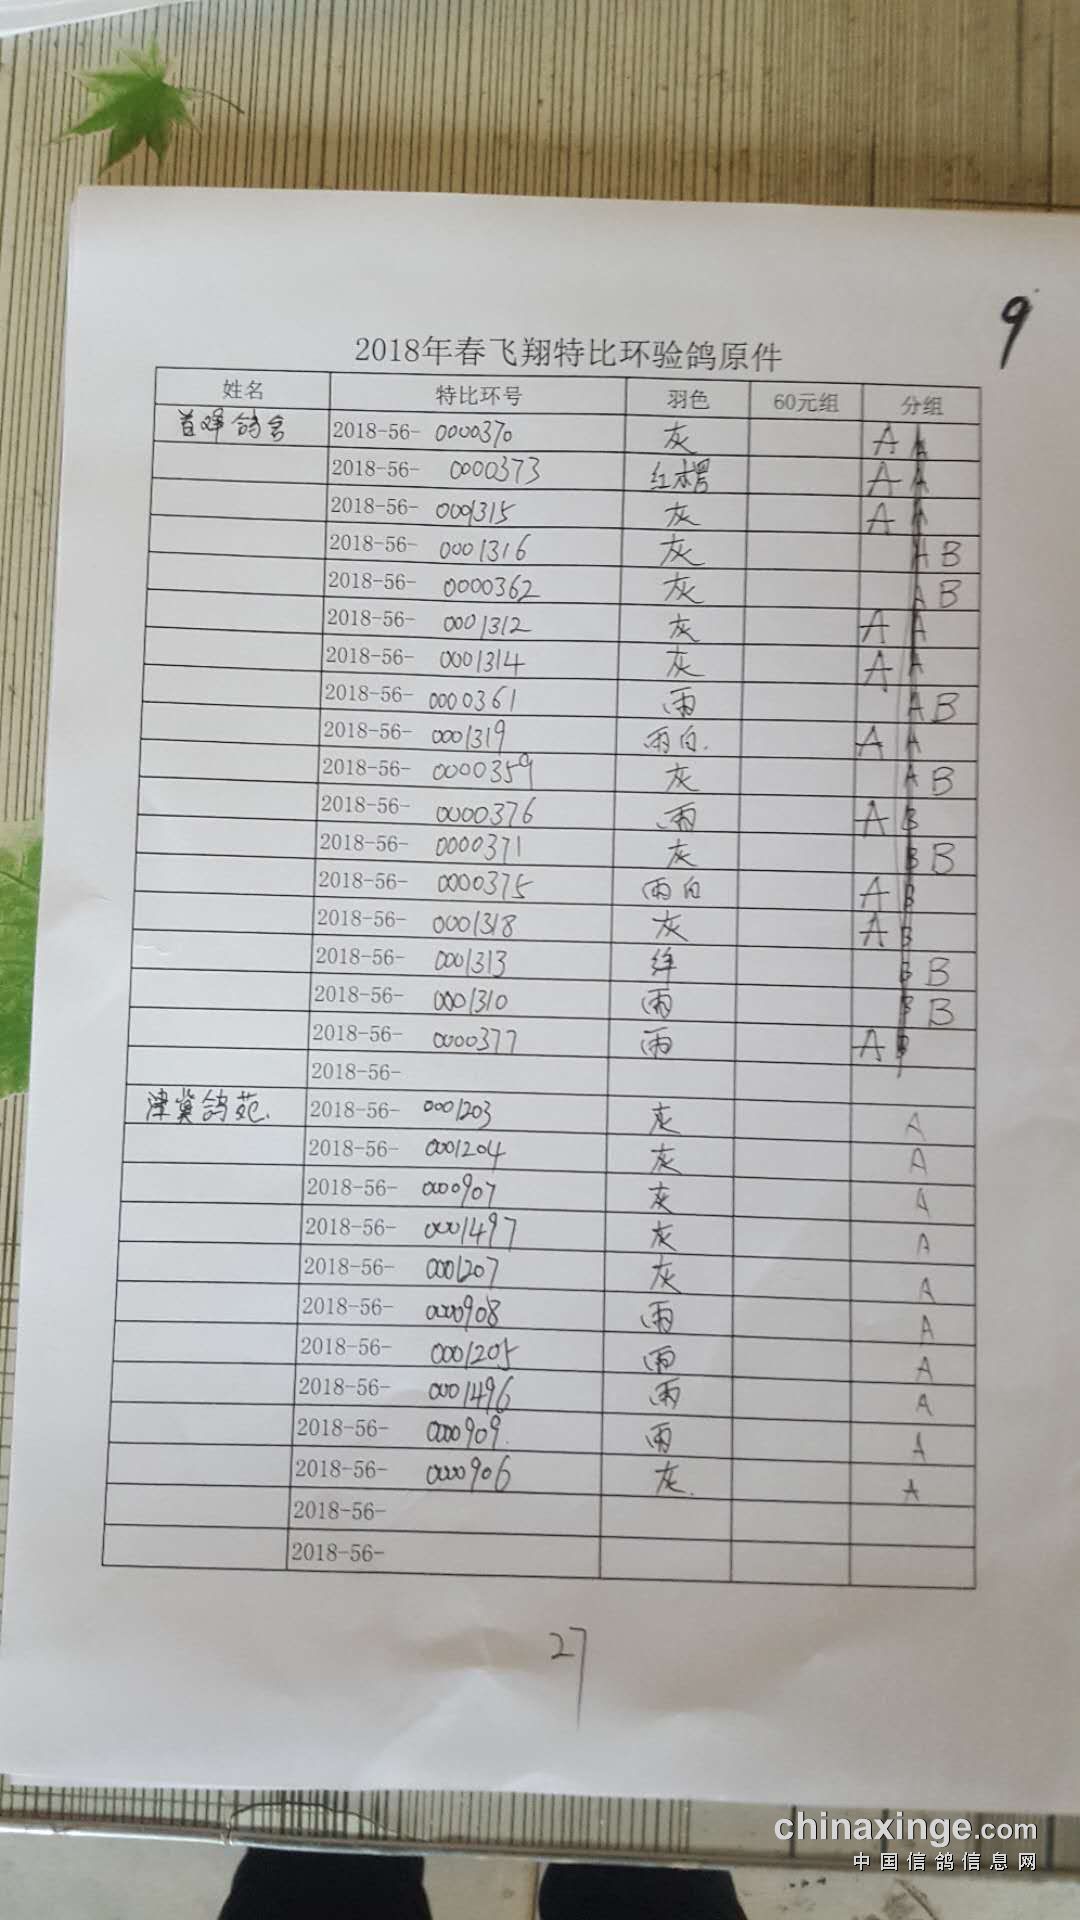 9
2018年春飞翔特比环验鸽原件
姓名 特比环号 羽色 60元组 分组
首峰鸽舍 2018-56- 0000370 灰 A A
2018-56- 0000373 红楞 A A
2018-56- 0001315 灰 A A
2018-56- 0001316 灰 A B
2018-56- 0000362 灰 A B
2018-56- 0001312 灰 A A
2018-56- 0001314 灰 A A
2018-56- 0000361 雨 A B
2018-56- 0001319 雨白. A A
2018-56- 0000359 灰 A B
2018-56- 0000376 雨 A B
2018-56- 0000371 灰 B B
2018-56- 0000375 雨白 A B
2018-56- 0001318 灰 A B
2018-56- 0001313 绛 B B
2018-56- 0001310 雨 B B
2018-56- 0000377 雨 A B
2018-56-
津冀鸽苑. 2018-56- 0001203 灰 A
2018-56- 0001204 灰 A
2018-56- 0000907 灰 A
2018-56- 0001497 灰 A
2018-56- 0001207 灰 A
2018-56- 0000908 雨 A
2018-56- 0001205 雨 A
2018-56- 0001496 雨 A
2018-56- 0000909. 雨 A
2018-56- 0000906 灰. A
2018-56-
2018-56-
27
chinaxinge.com
中国信鸽信息网